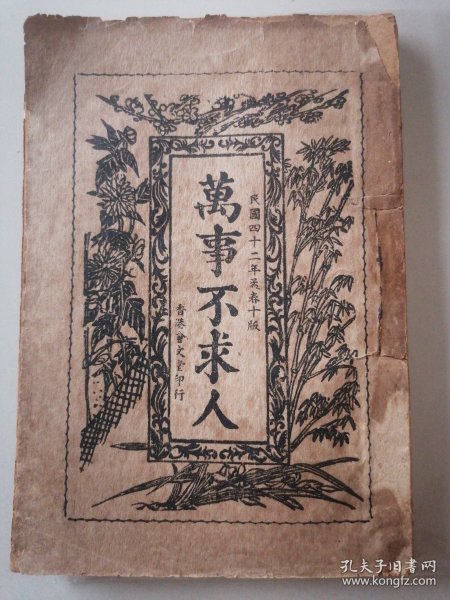 民國四十二年孟春十版
萬事不求人
香港會文堂印行
孔夫子旧书网
www.kongfz.com